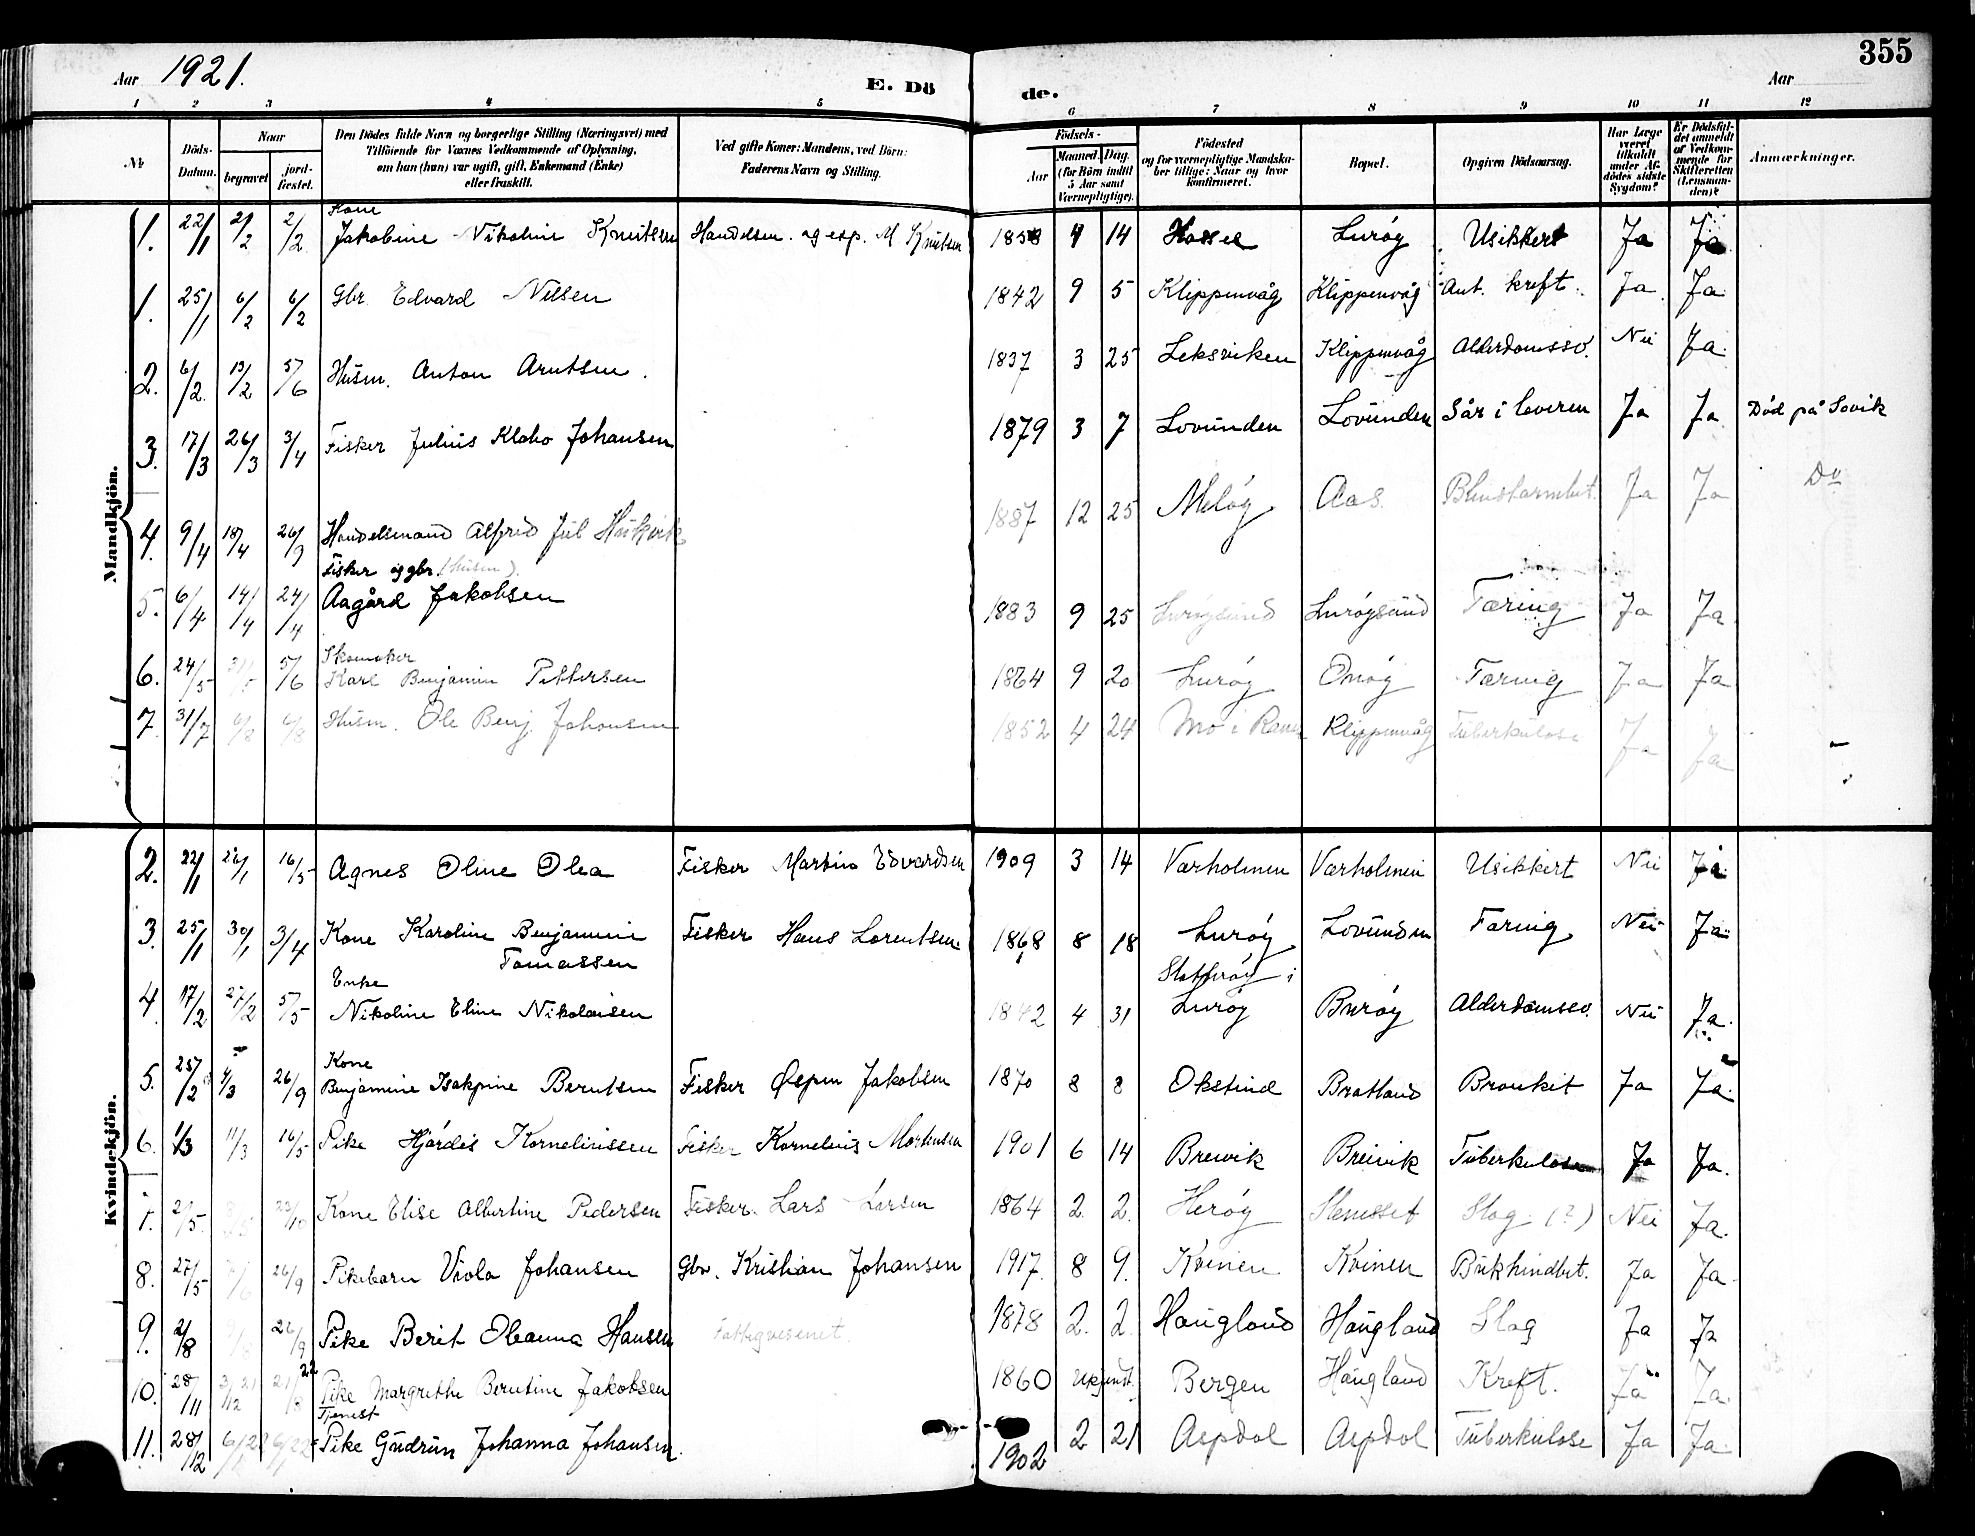 355
Aar 1921. E. Dö de. Aar
1 2 3 4 5 6 7 8 9 10 11 12
Nr. Döds-Datum. Naar begravet jordfæstet. Den Dödes fulde Navn og borgerlige Stilling (Næringsvei) med Tilföiende för Voxnes Vedkommende af Oplysning, om han (hun) var ugift, gift, Enkemand (Enke) eller fraskilt. Ved gifte Koner: Mandens, ved Börn: Faderens Navn og Stilling. Födsels- Aar Maaned. Dag. (for Börn indtil 5 Aar samt Værnepligtige). Födested og for værnepligtige Mandskaber tillige: Naar og hvor konfirmeret. Bopæl. Opgiven Dödsaarsag. Har Læge været tilkaldt under Afdödes sidste Sygdom? Er Dödsfaldet anmeldt af Vedkommende for Skifteretten (Lensmanden)? Anmærkninger.
Mandkjön.
Kone
1. 22/1 2/2 2/2 Jakobine Nikoline Knutsen Handelsm. og exp. M Knutsen 1858 4 14 Hassel Lurøy Usikkert Ja Ja
1. 25/1 6/2 6/2 Gbr. Edvard Nilsen 1842 9 5 Klippinvåg Klippinvåg Ant. kreft. Ja Ja
2. 6/2 13/2 5/6 Husm. Anton Arntsen. 1837 3 25 Leksviken Klippinvåg Alderdomssv. Nei Ja
3. 17/3 26/3 3/4 Fisker Julius Klabo Johansen 1879 3 7 Lovunden Lovunden Sår i leveren Ja Ja Død på Sovik
4. 9/4 18/4 26/9 Handelsmand Alfred Jul 1887 12 25 Meløy Aas Ja Ja Do
Fisker og gbr. (husm).
5. 6/4 14/4 24/4 Aagård Jakobsen 1883 9 25 Lurøysund Lurøysund Tæring Ja Ja
Skomaker
6. 24/5 31/5 5/6 Karl Benjamin Pettersen 1864 9 20 Lurøy Onøy Tæring Ja Ja
7. 31/7 6/8 6/8 Husm. Ole Benj. Johansen 1852 4 24 Mo i Rana Klippinvåg Tuberkulose Ja Ja
Kvindekjön.
2. 22/1 26/1 16/5 Agnes Oline Olea Fisker Martin Edvardsen 1909 3 14 Varholmen Værholmen Usikkert Nei Ja
3. 25/1 30/1 3/4 Kone Karoline Benjamine Fisker Hans Lorentsen 1868 8 18 Lurøy Lovunden Tæring Nei Ja
Tomassen
Enke i
4. 17/2 27/2 5/5 Nikoline Eline Nikolaisen 1842 4 31 Lurøy Burøy Alderdomssv. Nei Ja
Kone
5. 25/2 4/3 26/9 Benjamine Isakpine Berntsen Fisker Øspen Jakobsen 1870 8 8 Okstind Bratland Bronkit Ja Ja
6. 1/3 11/3 16/5 Pike Hjørdis Korneliussen Fisker Kornelius Mortensen 1901 6 14 Breivik Breivik Tuberkulose Ja Ja
7. 23/10 Kone Elise Albertine Pedersen Fisker Lars Larsen 1864 2 2 Herøy Stenesset Slag (?) Nei Ja
8. 27/5 26/9 Pikebarn Viola Johansen Gbr. Kristian Johansen 1917 8 9 Kvinen Kvinen Bukhindbet. Ja Ja
9. 2/8 26/9 Pike Berit Oleanna Hansen Fattigvesenet 1878 2 2 Haugland Haugland Slag Ja Ja
10. 28/11 3/12 21 21/8 22 Pike Margrethe Berntine Jakobsen 1860 Ukjendt Bergen Haugland Kreft. Ja Ja
Tjenest
11. 28/12 Pike Gudrun Johanna Johansen. 1902 2 21 Aspdal Aspdal Tuberkulose Ja Ja